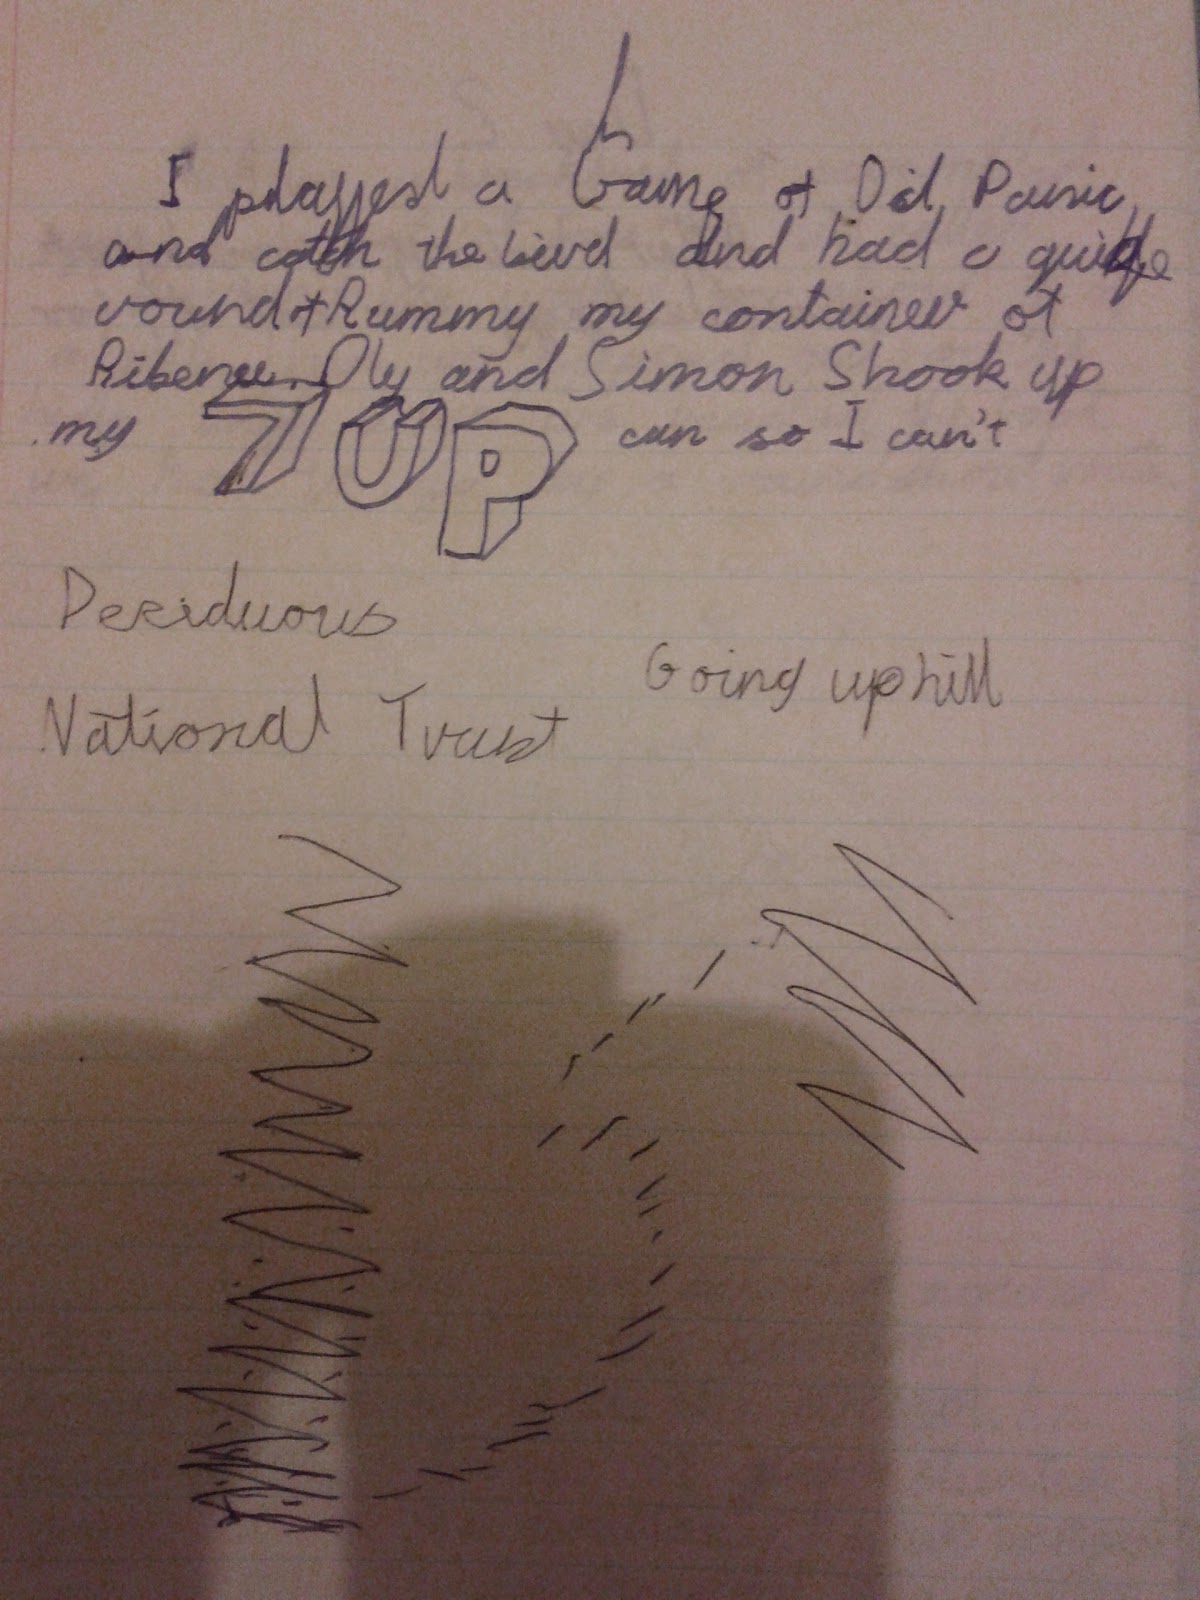 I played a Game of Oil Panic
and catch the bird and had a
round of Rummy my container of
Ribena. Oly and Simon Shook up
my 7UP can so I can't
Desiduous
Going uphill
National Trust